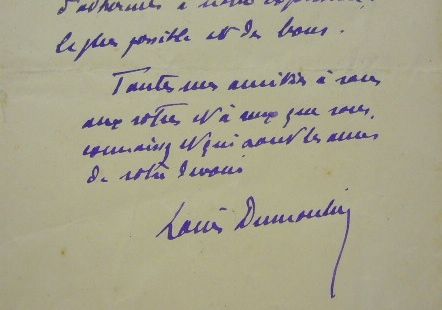 d'adhérents à notre exposition,
le plus possible et des bons.
Toutes mes amitiés à vous
aux votres et à ceux que vous
connaissez et qui sont les amis
de votre
Louis Dumoulin